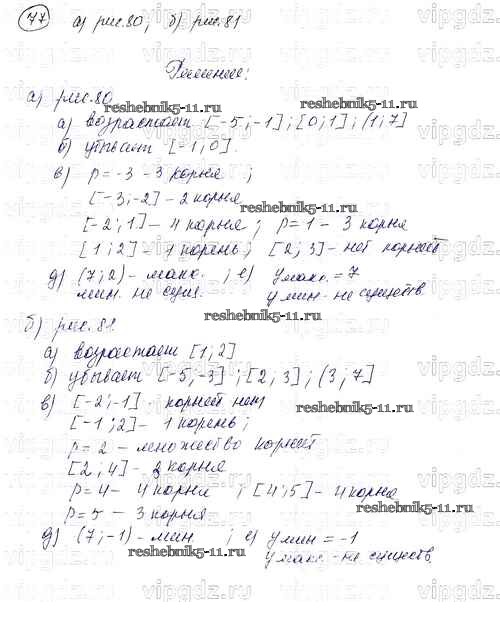 77 а) рис.80; б) рис.81
Решение:
а) рис.80
reshebnik5-11.ru
а) возрастает [-5;-1]; [0;1]; (1;7]
б) убывает [-1;0].
в) p=-3 - 3 корня ;
reshebnik5-11.ru
[-3;-2] - 2 корня
[-2;1] - 4 корня ; p=1 - 3 корня
[1;2] - 1 корень; [2;3] - нет корней
д) (7;2) - макс. ; е) y макс. = 7
мин. не сущ. y мин - не существ.
reshebnik5-11.ru
б) рис.81.
а) возрастает [1;2]
б) убывает [-5;-3]; [2;3]; (3;7]
в) [-2;-1] - корней нет
reshebnik5-11.ru
[-1;2] - 1 корень;
p=2 - множество корней
[2;4] - 2 корня
p=4 - 4 корня ; [4;5] - 4 корня
reshebnik5-11.ru
p=5 - 3 корня
д) (7;-1) - мин ; е) y мин = -1
reshebnik5-11.ru
y макс. - не существ.
vipgdz.ru